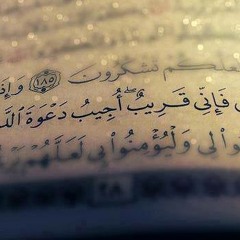 لعلكم تشكرون ١٨٥ وَإِذَ
فَإِنِّى قَرِيبٌ ۖ أُجِيبُ دَعْوَةَ
لِى وَلْيُؤْمِنُوا۟ بِى لَعَلَّهُمْ
٢٨